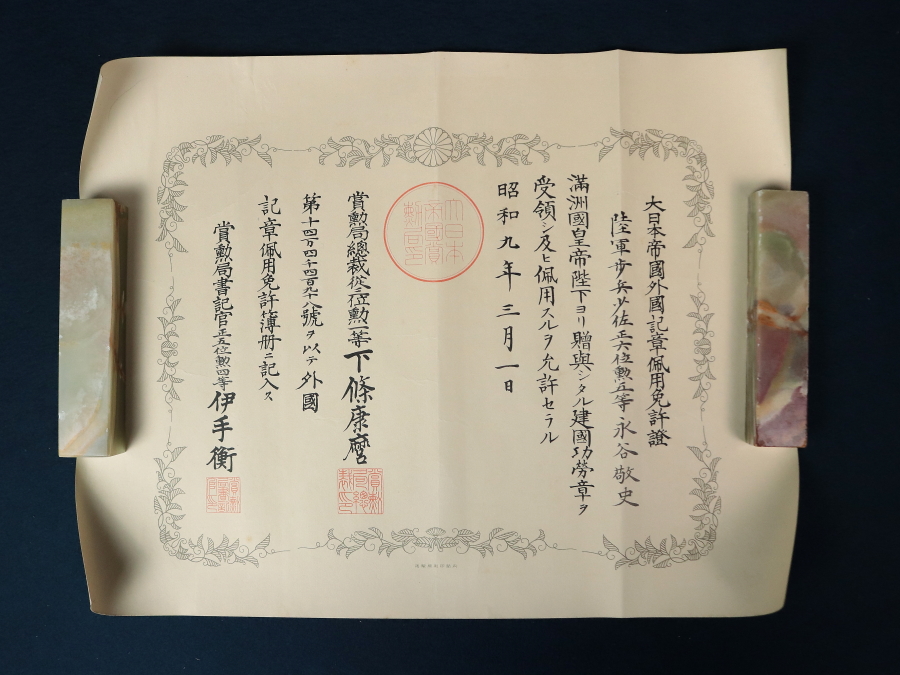 大日本帝國外國記章佩用免許證
陸軍歩兵少佐正六位勲五等永谷敬史
滿洲國皇帝陛下ヨリ贈與シタル建國功勞章ヲ
受領シ及ヒ佩用スルヲ允許セラル
昭和九年三月一日
大日本
帝國賞
勲局印
賞勲局總裁從三位勲一等下條康麿
賞勲
局總
裁印
第十四万四千四百九十八號ヲ以テ外國
記章佩用免許簿册ニ記入ス
賞勲局書記官正五位勲四等伊手衡